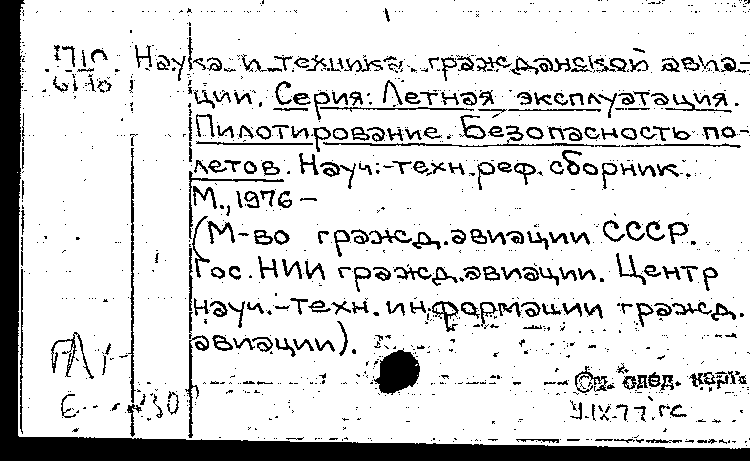 Наука и техника гражданской авиа-
ции. Серия: Летная эксплуатация.
Пилотирование. Безопасность по-
летов. Науч.-техн. реф. сборник.
М., 1976 –
(М-во гражд. авиации СССР.
Гос. НИИ гражд. авиации. Центр
науч.-техн. информации гражд.
авиации).
См. след. карт.
9.IX.77. гс